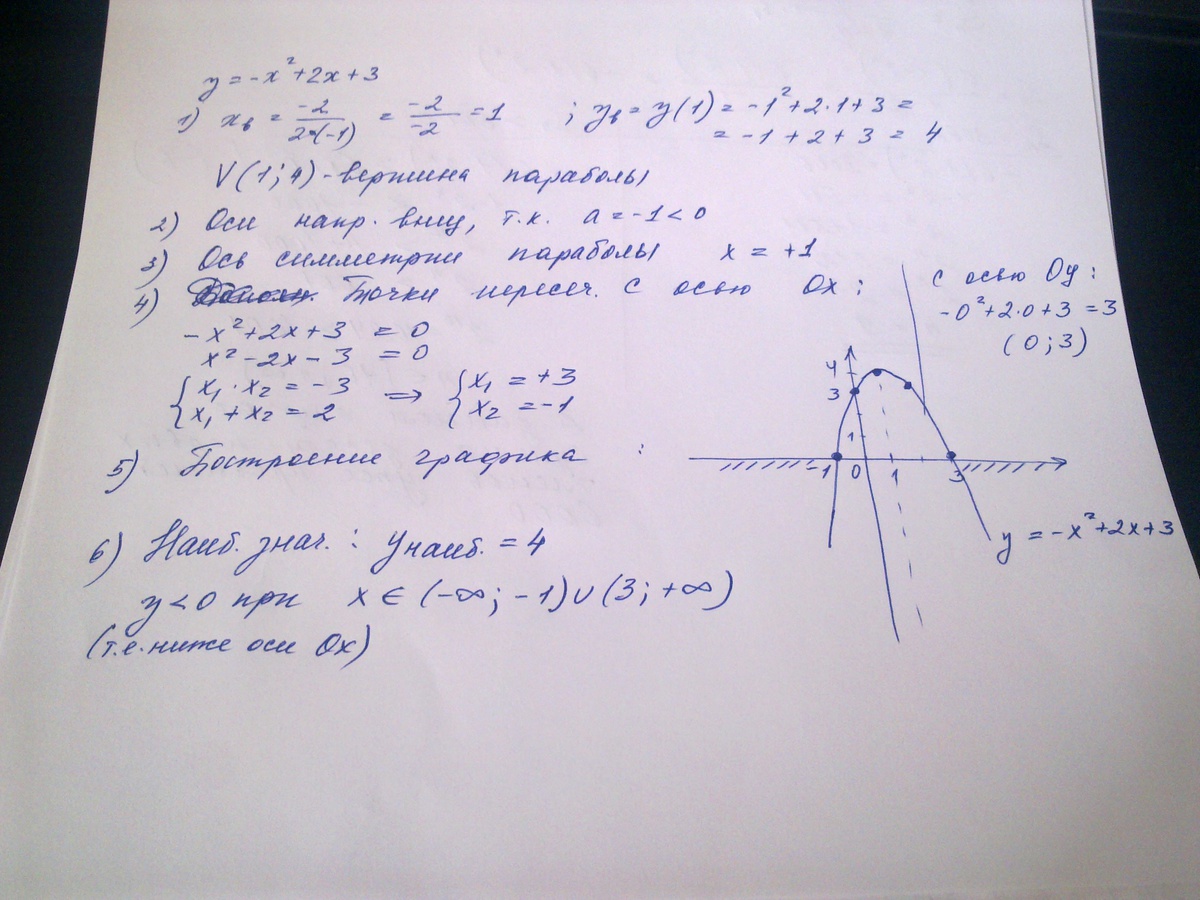 y = -x² + 2x + 3
1) xв = -2/2·(-1) = -2/-2 = 1 ; yв = y(1) = -1² + 2·1 + 3 =
= -1 + 2 + 3 = 4
V(1; 4) - вершина параболы
2) Оси напр. вниз, т.к. a = -1 < 0
3) Ось симметрии параболы x = +1
4) Точки пересеч. с осью Ox:
-x² + 2x + 3 = 0
x² - 2x - 3 = 0
{ x₁ · x₂ = -3 ⇒ { x₁ = +3
{ x₁ + x₂ = 2 { x₂ = -1
с осью Oy:
-0² + 2·0 + 3 = 3
(0; 3)
5) Построение графика :
4
3
1
-1 0 1 3
y = -x² + 2x + 3
6) Наиб. знач.: yнаиб. = 4
y < 0 при x ∈ (-∞; -1) ∪ (3; +∞)
(т.е. ниже оси Ox)